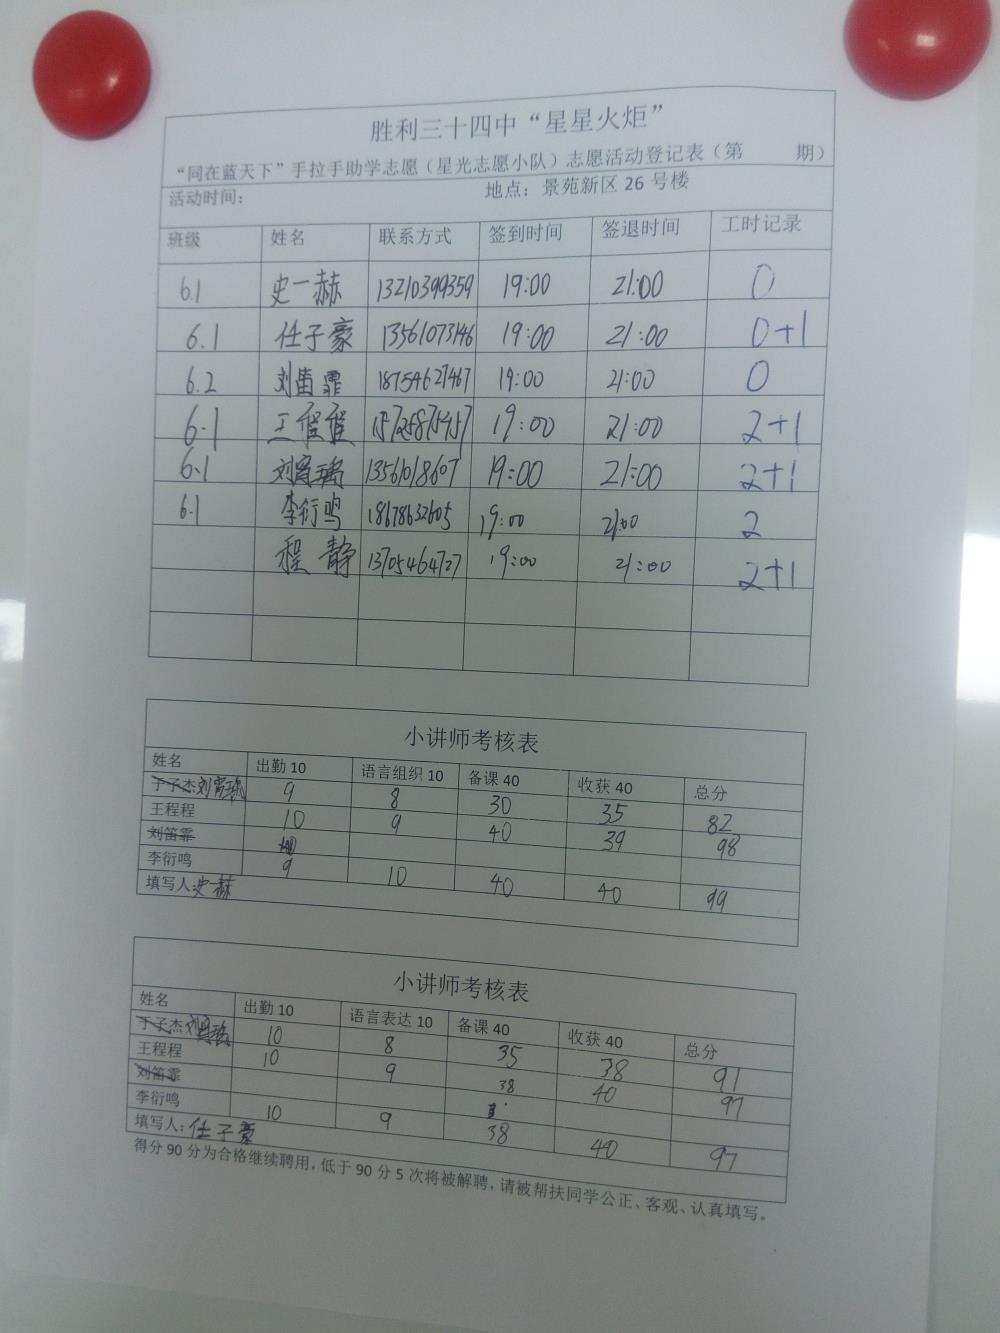 胜利三十四中“星星火炬”
“同在蓝天下”手拉手助学志愿（星光志愿小队）志愿活动登记表（第 期）
活动时间： 地点：景苑新区 26 号楼
班级 姓名 联系方式 签到时间 签退时间 工时记录
6.1 史一赫 13210399359 19:00 21:00 0
6.1 任子豪 13561073146 19:00 21:00 0+1
6.2 刘笛霏 18754627467 19:00 21:00 0
6.1 王程程 15725875457 19:00 21:00 2+1
6.1 刘宵瑀 13561018607 19:00 21:00 2+1
6.1 李衍鸣 18678632605 19:00 21:00 2
程静 13705464727 19:00 21:00 2+1
小讲师考核表
姓名 出勤 10 语言组织 10 备课 40 收获 40 总分
于子杰 刘宵瑀 9 8 30 35 82
王程程 10 9 40 39 98
刘笛霏
李衍鸣 9 10 40 40 99
填写人 史赫
小讲师考核表
姓名 出勤 10 语言表达 10 备课 40 收获 40 总分
于子杰 刘宵瑀 10 8 35 38 91
王程程 10 9 38 40 97
刘笛霏
李衍鸣 10 9 38 40 97
填写人：任子豪
得分 90 分为合格继续聘用，低于 90 分 5 次将被解聘，请被帮扶同学公正、客观、认真填写。